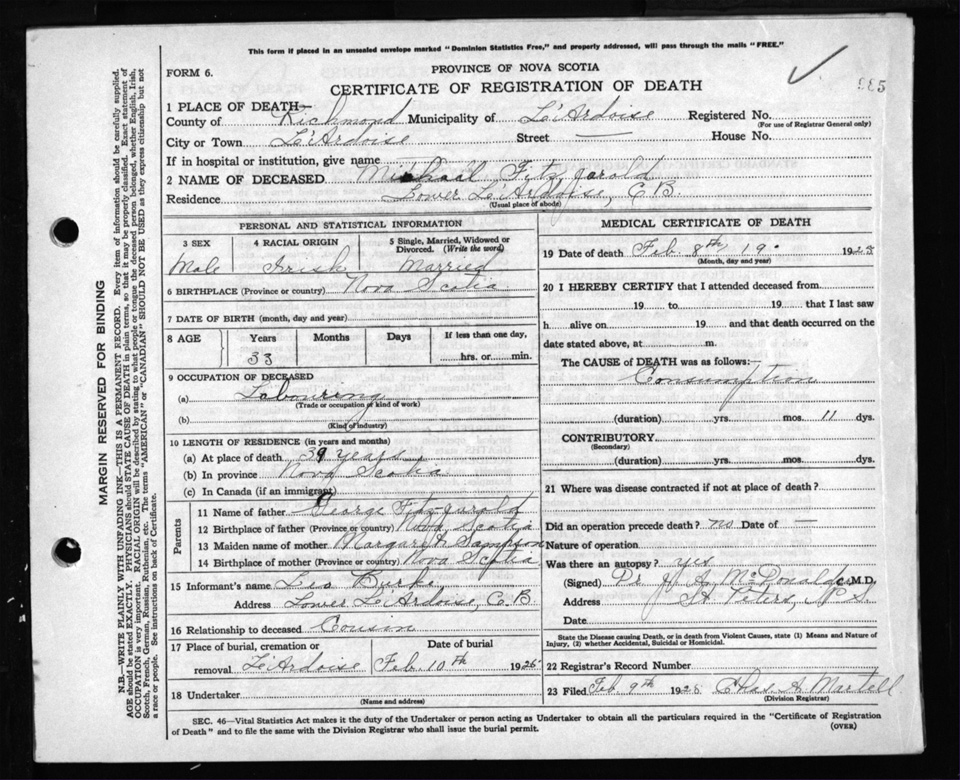 This form if placed in an unsealed envelope marked "Dominion Statistics Free," and properly addressed, will pass through the mails "FREE."
FORM 6.
PROVINCE OF NOVA SCOTIA
CERTIFICATE OF REGISTRATION OF DEATH
1 PLACE OF DEATH—
County of Richmond Municipality of L'Ardoise Registered No.
(For use of Registrar General only)
City or Town L'Ardoise Street — House No.
If in hospital or institution, give name
2 NAME OF DECEASED Michael Fitzgerald
Residence Lower L'Ardoise, C B
(Usual place of abode)
PERSONAL AND STATISTICAL INFORMATION
3 SEX 4 RACIAL ORIGIN 5 Single, Married, Widowed or Divorced. (Write the word)
Male Irish Married
6 BIRTHPLACE (Province or country) Nova Scotia
7 DATE OF BIRTH (month, day and year)
8 AGE Years Months Days If less than one day,
33 hrs. or min.
9 OCCUPATION OF DECEASED
(a) Labouring
(Trade or occupation of kind of work)
(b)
(Kind of industry)
10 LENGTH OF RESIDENCE (in years and months)
(a) At place of death years
(b) In province Nova Scotia
(c) In Canada (if an immigrant)
Parents
11 Name of father George Fitzgerald
12 Birthplace of father (Province or country) Nova Scotia
13 Maiden name of mother Margaret Sampson
14 Birthplace of mother (Province or country) Nova Scotia
15 Informant's name Leo Burke
Address Lower L'Ardoise, C. B
16 Relationship to deceased Cousin
17 Place of burial, cremation or Date of burial
removal L'Ardoise Feb. 10th 192
18 Undertaker
(Name and address)
MEDICAL CERTIFICATE OF DEATH
19 Date of death Feb 8th 192
(Month, day and year)
20 I HEREBY CERTIFY that I attended deceased from
19 to 19 that I last saw
h alive on 19 and that death occurred on the
date stated above, at m.
The CAUSE of DEATH was as follows:—
Consumption
(duration) yrs. mos. 11 dys.
CONTRIBUTORY
(Secondary)
(duration) yrs. mos. dys.
21 Where was disease contracted if not at place of death?
Did an operation precede death? no Date of —
Nature of operation
Was there an autopsy? yes
(Signed) Dr J A McDonald M.D.
Address St. Peters, N S
Date
State the Disease causing Death, or in death from Violent Causes, state (1) Means and Nature of
Injury, (2) whether Accidental, Suicidal or Homicidal.
22 Registrar's Record Number
23 Filed Feb 9th 192 Chas A Martell
(Division Registrar)
SEC. 46—Vital Statistics Act makes it the duty of the Undertaker or person acting as Undertaker to obtain all the particulars required in the "Certificate of Registration
of Death" and to file the same with the Division Registrar who shall issue the burial permit.
(OVER)
MARGIN RESERVED FOR BINDING
N.B.—WRITE PLAINLY WITH UNFADING INK—THIS IS A PERMANENT RECORD. Every item of information should be carefully supplied.
AGE should be stated EXACTLY. PHYSICIANS should STATE CAUSE OF DEATH in plain terms, so that it may be properly classified. Exact statement of
OCCUPATION is very important. RACIAL ORIGIN will be described by stating to what people or tongue the deceased person belonged, whether English, Irish,
Scotch, French, German, Russian, Ruthenian, etc. The terms "AMERICAN" or "CANADIAN" SHOULD NOT BE USED as they express citizenship but not
a race or people. See instructions on back of Certificate.